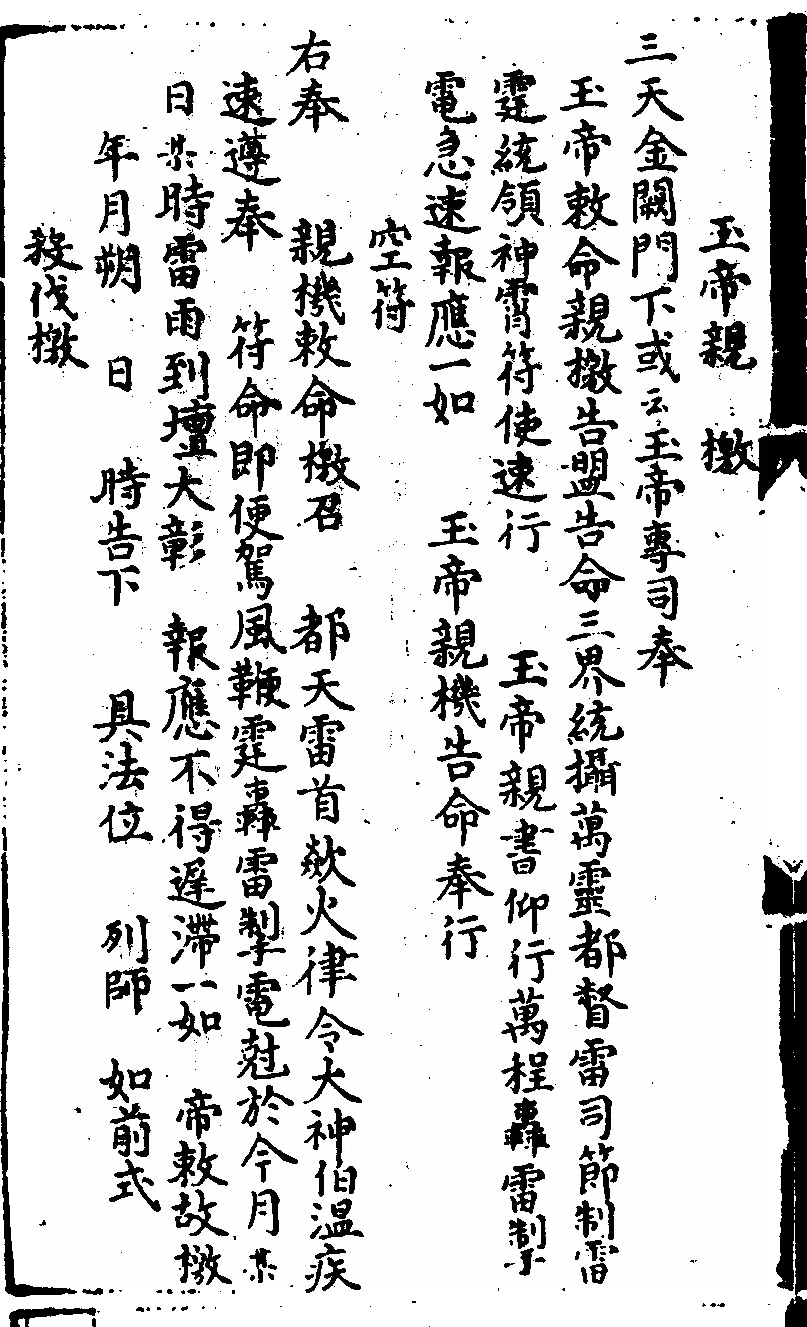 玉帝親檄
三天金闕門下或云玉帝專司奉
玉帝敕命親檄告盟告命三界統攝萬靈都督雷司節制雷
霆統領神霄符使速行　玉帝親書仰行萬程轟雷掣
電急速報應一如　玉帝親機告命奉行
空符
右奉　親機敕命檄召　都天雷首歘火律令大神伯溫疾
速遵奉　符命即便駕風鞭霆轟雷掣電尅於今月某
日某時雷雨到壇大彰　報應不得遲滯一如　帝敕故檄
年月朔　日　時告下　具法位　列師　如前式
殺伐檄